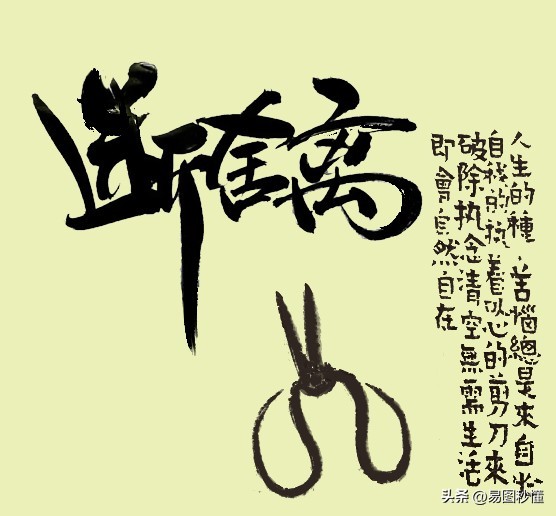 斷舍离
人生的種，苦惱總是來自於
自我的执着以心的剪刀來
破除执念清空無需生活
即會自然自在
头条 @易图秒懂